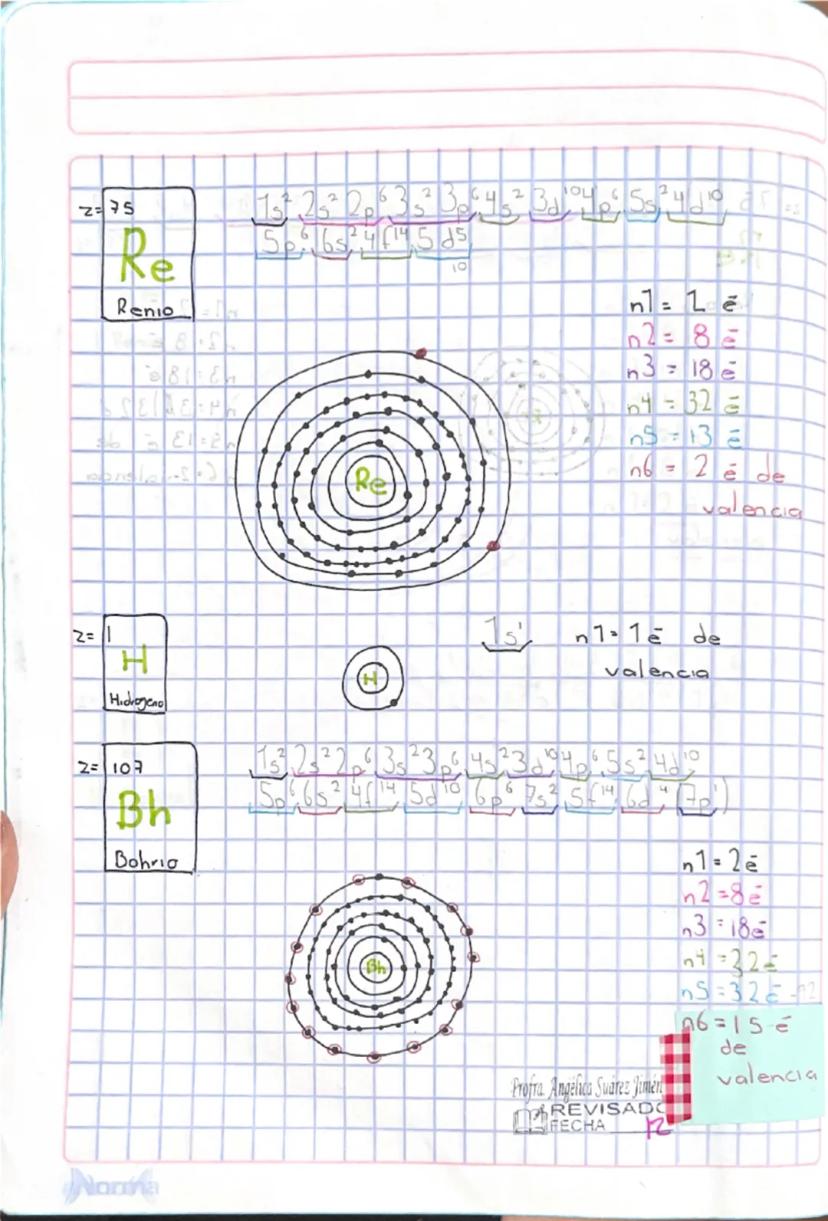 z= 75
Re
Renio
1s² 2s² 2p⁶ 3s² 3p⁶ 4s² 3d¹⁰ 4p⁶ 5s² 4d¹⁰
5p⁶ 6s² 4f¹⁴ 5d⁵
10
n1 = 2 ē
n2 = 8 ē
n3 = 18 ē
n4 = 32 ē
n5 = 13 ē
n6 = 2 ē de
valencia
Re
z= 1
H
Hidrógeno
H
1s¹
n1 = 1 ē de
valencia
z= 107
Bh
Bohrio
1s² 2s² 2p⁶ 3s² 3p⁶ 4s² 3d¹⁰ 4p⁶ 5s² 4d¹⁰
5p⁶ 6s² 4f¹⁴ 5d¹⁰ 6p⁶ 7s² 5f¹⁴ 6d⁴ (7p¹)
n1 = 2ē
n2 = 8ē
n3 = 18ē
n4 = 32ē
n5 = 32ē
n6 = 15 ē
de
valencia
Bh
Profra. Angélica Suárez Jimén
REVISADO
FECHA
12
Norma